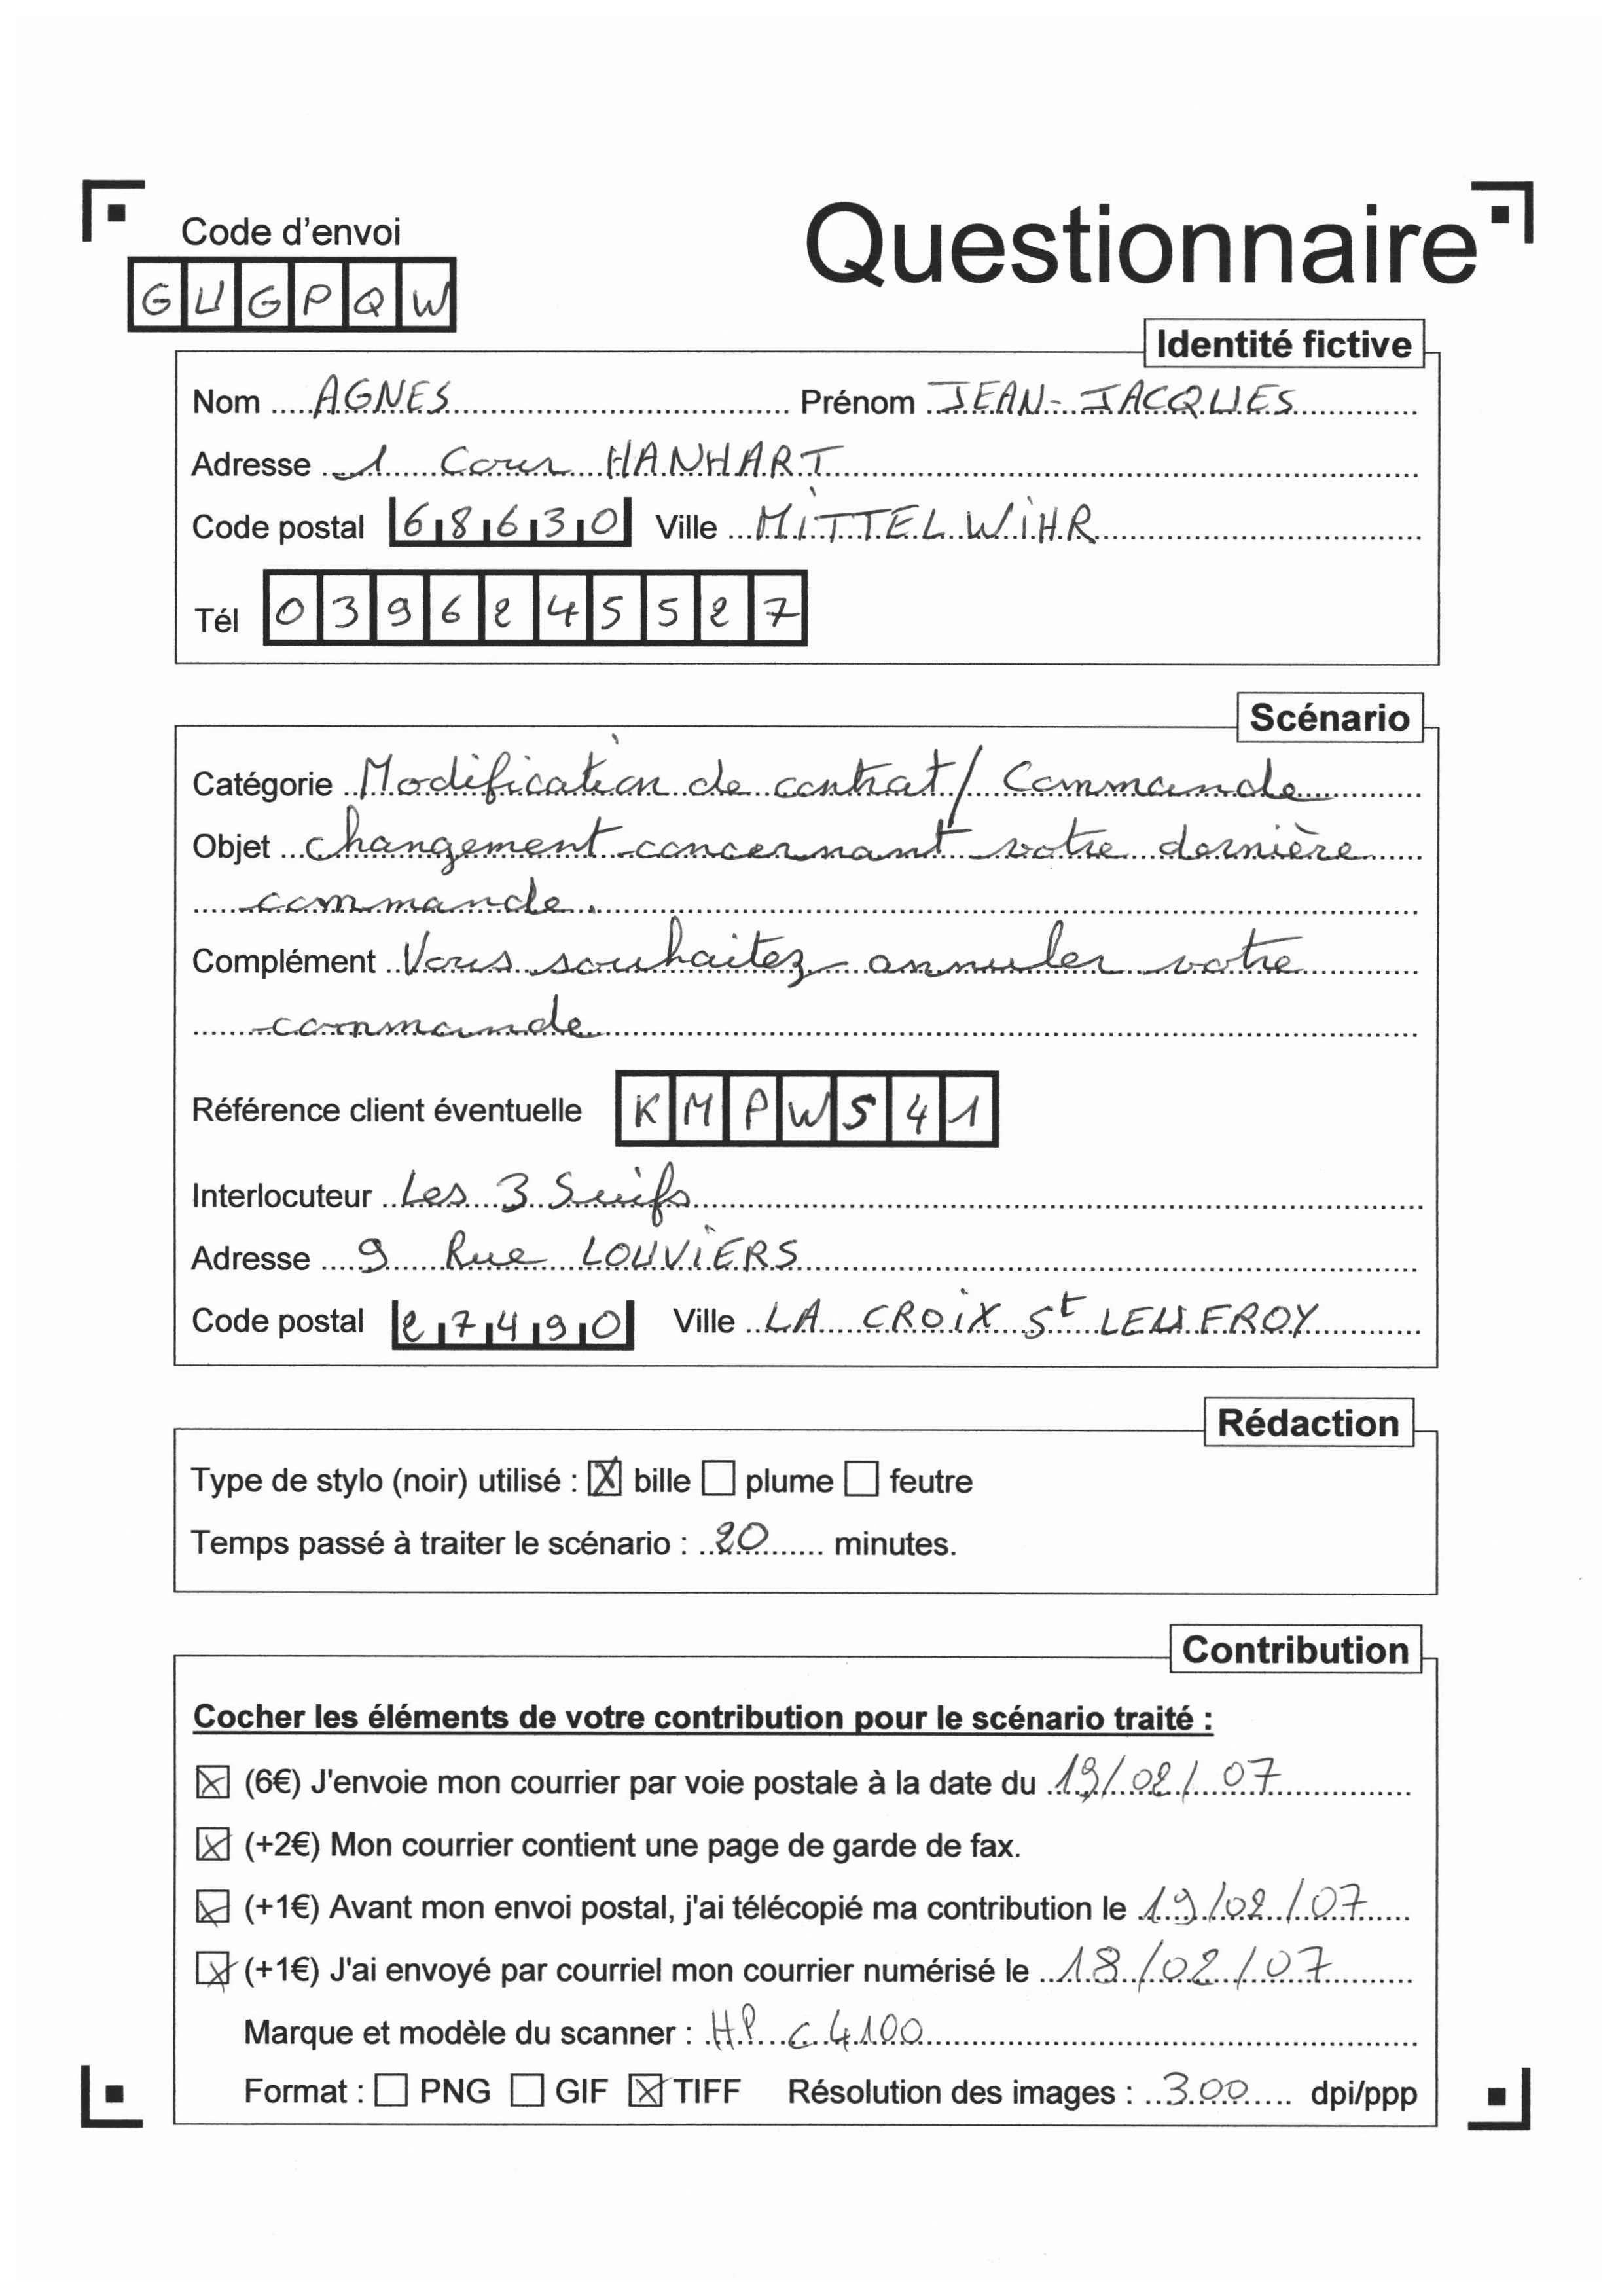 Code d'envoi
Questionnaire
GUGPQW
Identité fictive
Nom AGNES Prénom JEAN-JACQUES
Adresse 1 Cour HANHART
Code postal 68630 Ville MITTELWIHR
Tél 0396245527
Scénario
Catégorie Modification de contrat / Commande
Objet changement concernant votre dernière
commande.
Complément Vous souhaitez annuler votre
commande
Référence client éventuelle KMPWS41
Interlocuteur Les 3 Suifs
Adresse 9 Rue LOUVIERS
Code postal 27490 Ville LA CROIX St LEUFROY
Rédaction
Type de stylo (noir) utilisé : ☒ bille ☐ plume ☐ feutre
Temps passé à traiter le scénario : 20 minutes.
Contribution
Cocher les éléments de votre contribution pour le scénario traité :
☒ (6€) J'envoie mon courrier par voie postale à la date du 19/02/07
☒ (+2€) Mon courrier contient une page de garde de fax.
☒ (+1€) Avant mon envoi postal, j'ai télécopié ma contribution le 19/02/07
☒ (+1€) J'ai envoyé par courriel mon courrier numérisé le 18/02/07
Marque et modèle du scanner : HP C4100
Format : ☐ PNG ☐ GIF ☒ TIFF Résolution des images : 300 dpi/ppp